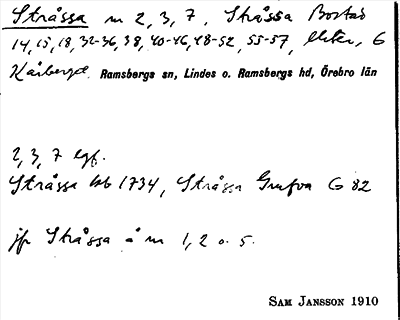 Stråssa m 2, 3, 7, Stråssa Bostad
14, 15, 18, 32-36, 38, 40-46, 48-52, 55-57, 6
Ramsbergs sn, Lindes o. Ramsbergs hd, Örebro län
2, 3, 7 egf.
Stråssa hb 1734, Stråssa Grufva G 82
jfr Stråssa å m 1, 2 o. 5.
SAM JANSSON 1910